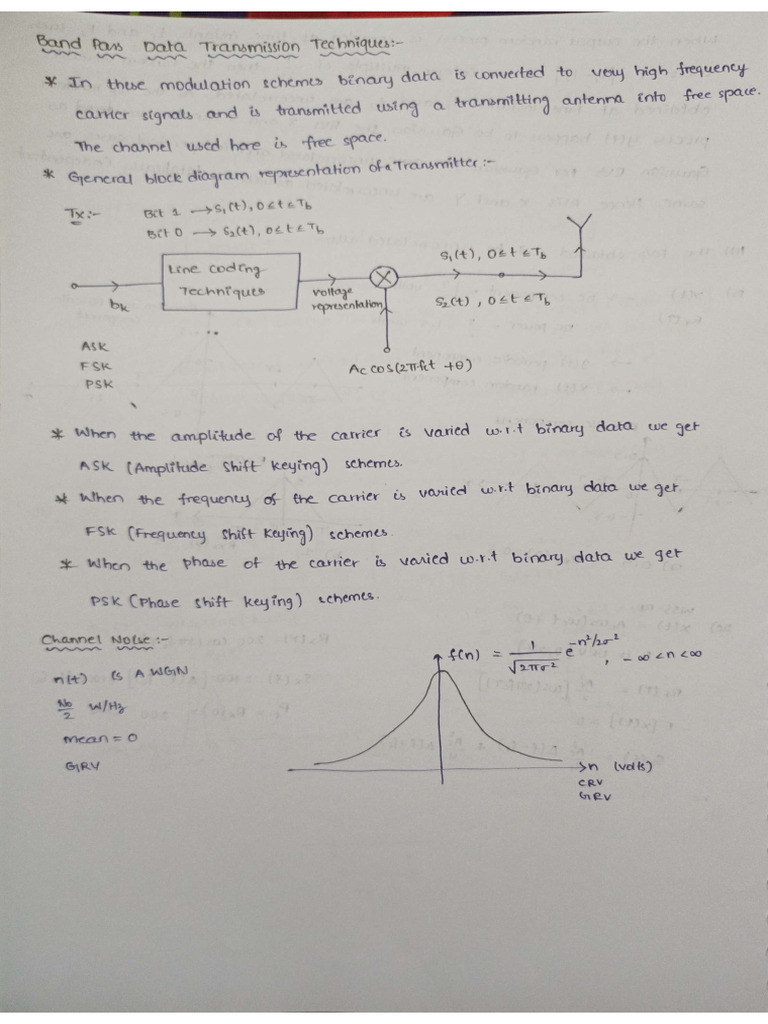 Band Pass Data Transmission Techniques:-
* In these modulation schemes binary data is converted to very high frequency
carrier signals and is transmitted using a transmitting antenna into free space.
The channel used here is free space.
* General block diagram representation of a Transmitter:-
Tx:- Bit 1 → S₁(t), 0≤t≤Tb
Bit 0 → S₂(t), 0≤t≤Tb
S₁(t), 0≤t≤Tb
Line Coding
Techniques
bk
voltage
representation
S₂(t), 0≤t≤Tb
Ac cos(2πfct +θ)
ASK
FSK
PSK
* When the amplitude of the carrier is varied w.r.t binary data we get
ASK (Amplitude Shift Keying) schemes.
* When the frequency of the carrier is varied w.r.t binary data we get
FSK (Frequency Shift Keying) schemes.
* When the phase of the carrier is varied w.r.t binary data we get
PSK (Phase Shift Keying) schemes.
Channel Noise:-
f(n) = 1/√2πσ² e^-n²/2σ², -∞<n<∞
n(t) is AWGN
No/2 W/Hz
mean = 0
GRV
n (volts)
CRV
GRV